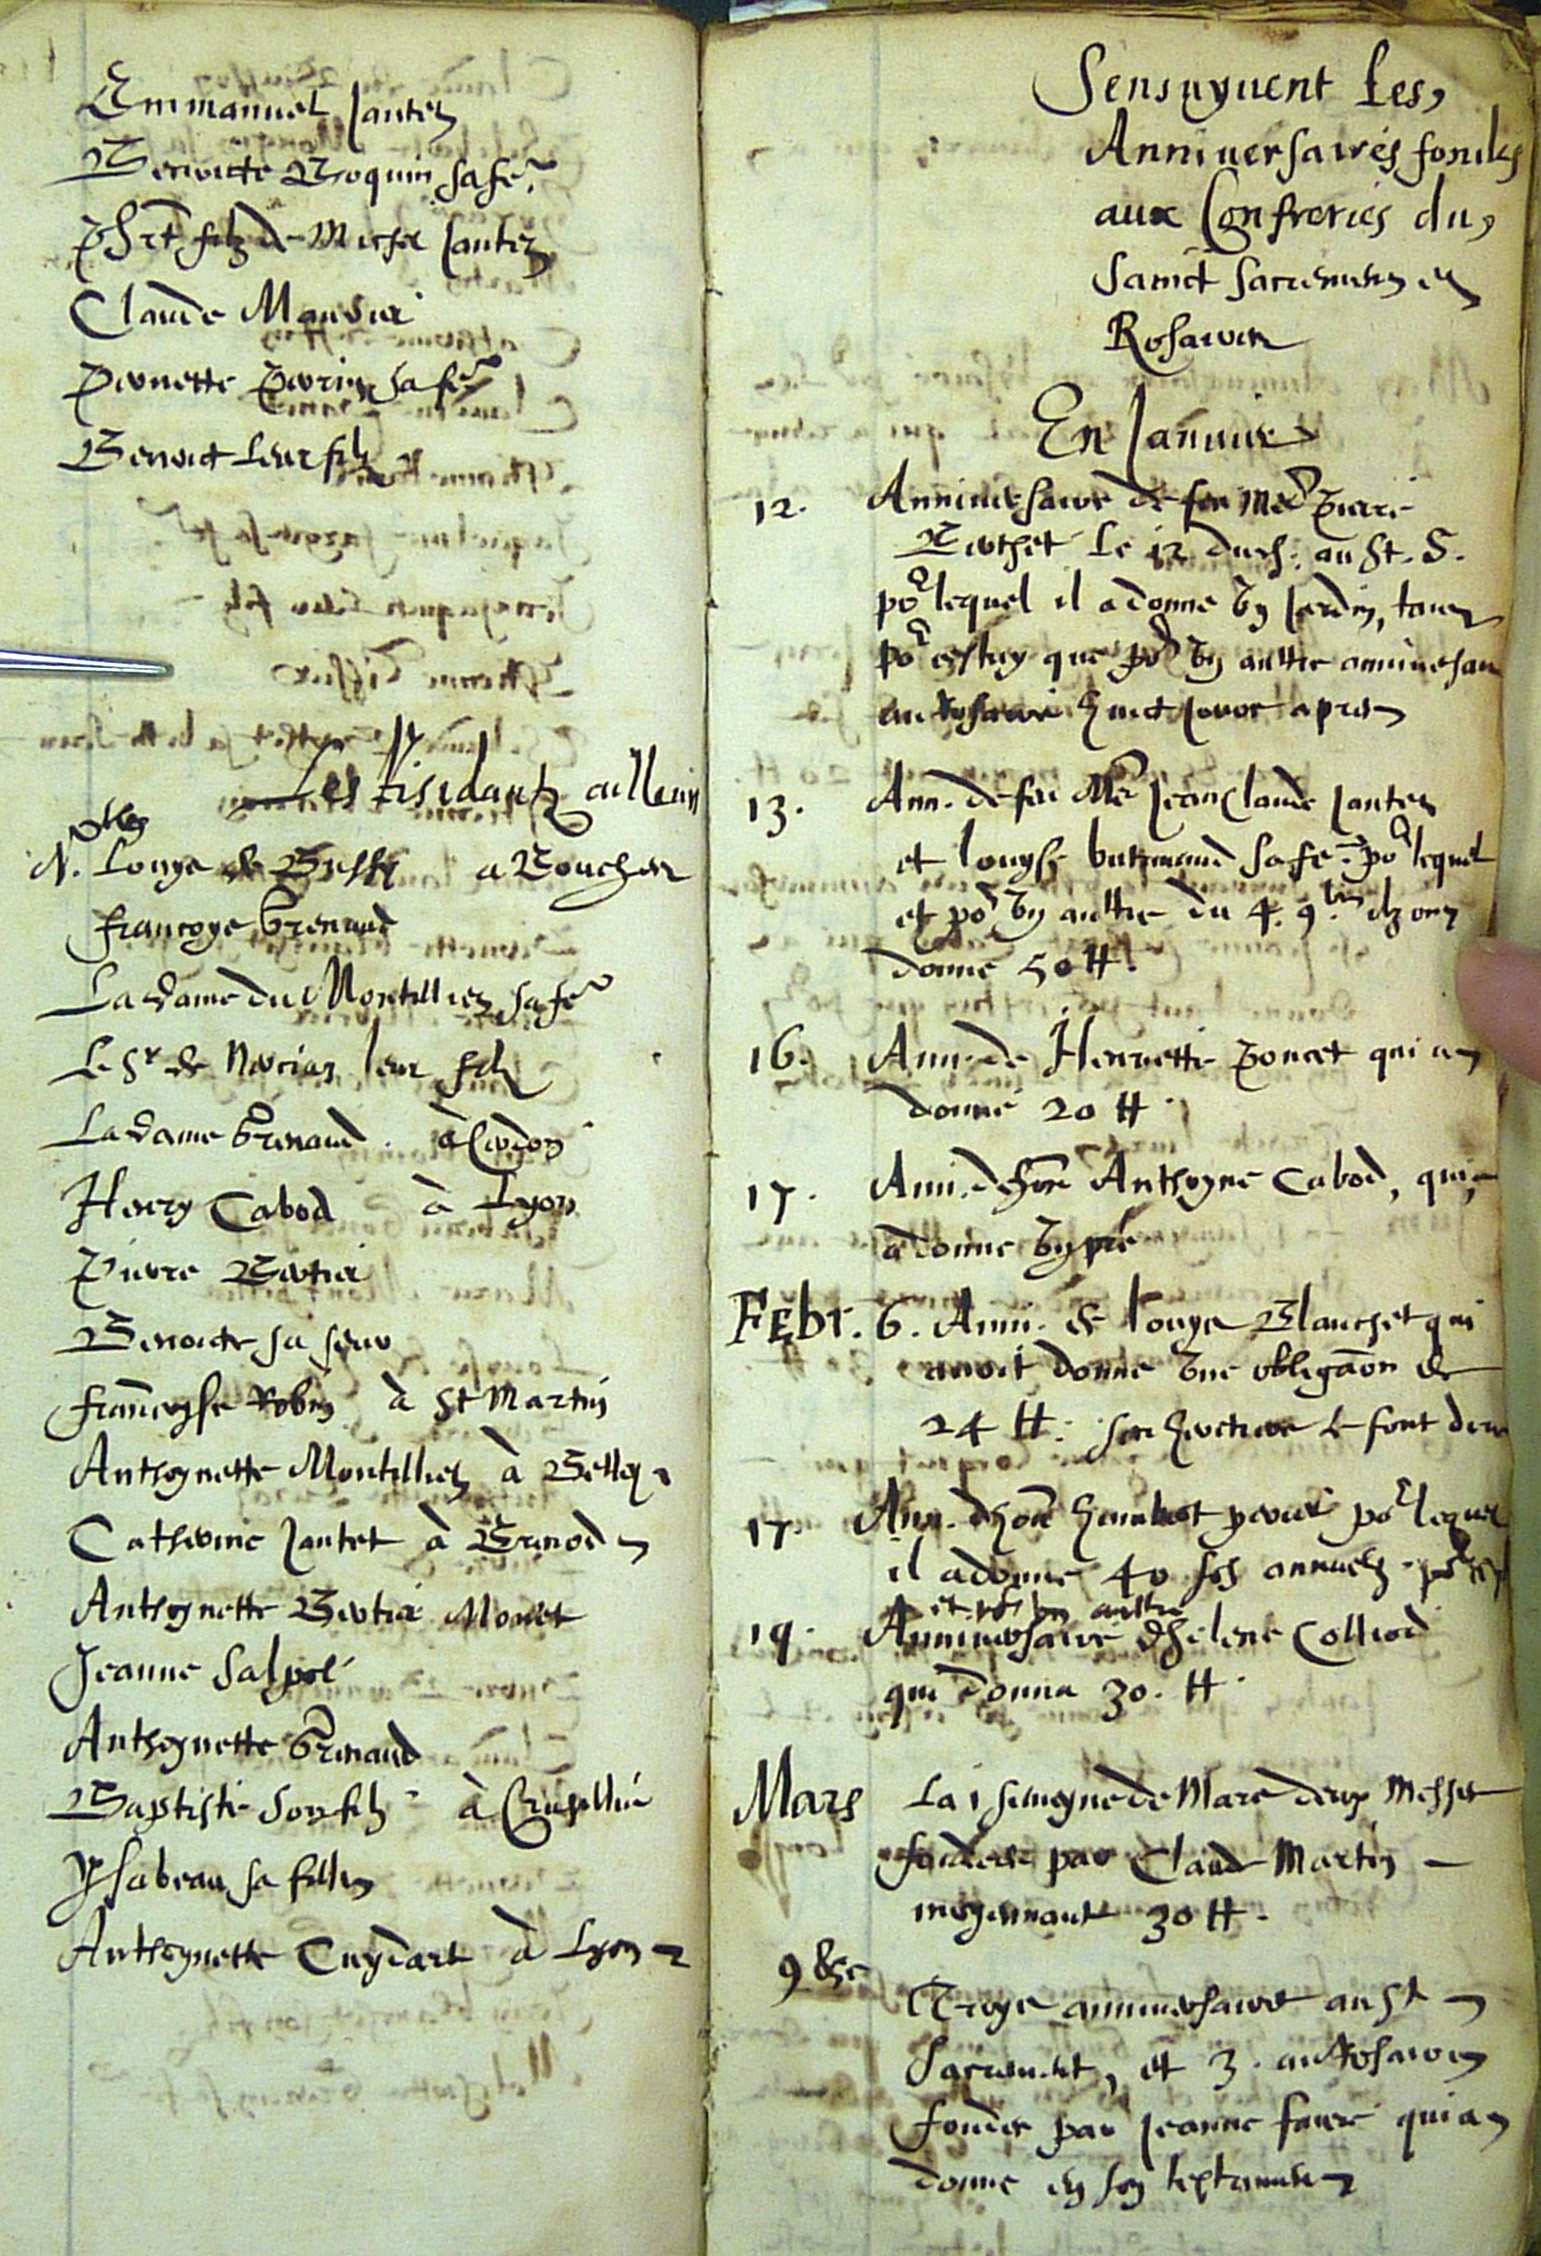 Emmanuel Jantet
Benoicte Boquin sa fe.
filz de Michel Jantet
Claude
Pernette Perrin sa fe.
Benoict leur filz
Les Risidantz ailleurs
N. Louyse de a
Francoyse Grenaud
La dame du Montillet sa fe.
Le Sr de leur filz
La dame Grenaud. à Cerdon
Henry Cabod à Lyon
Pierre Bertier
Benoicte sa seur
Francoyse Robin à St Martin
Anthoynette Montillet à Belley
Catherine Jantet à Brenod
Anthoynette Bertier
Jeanne
Anthoynette Grenaud
Baptiste son filz à
Ysabeau sa fille
Anthoynette à Lyon
Sensuyuent Les
Anniuersaires fondés
aux Confreries du
Sainct Sacrement et
Rosaire
En Januier
12. Anniuersaire de feu Pierre
Berthet le 12 dudt. au St. S.
por lequel il a donne vn Jardin, tant
por cestuy que por vn aultre anniuersaire
au Rosaire huict jours apres
13. Ann. de feu Mre Jean Claude Jantet
et Louyse sa fe. por lequel
et por vn aultre du 4. 9bre ilz ont
donne 50 tt.
16. Ann. de Henriette Poncet qui a
donné 20 tt.
17. Ann. dhon. Anthoyne Cabod, qui
a donne vn pré
FEbr. 6. Ann. de Louyse Blanchet qui
auoit donne vne obligaon de
24 tt. ses le font dire
17. Ann. dhon. por lequel
il a donne 40 sos annuelz
et por vn aultre
19. Anniuersaire dhelene Colliod
qui donna 30. tt.
Mars La 1 semayne de Mars deux Messes
fondees par Claude Martin
moyennant 30 tt.
Troys anniuersaires au St
Sacrement, et 3. au Rosaire
fondes par Jeanne faure qui a
donne en son testament